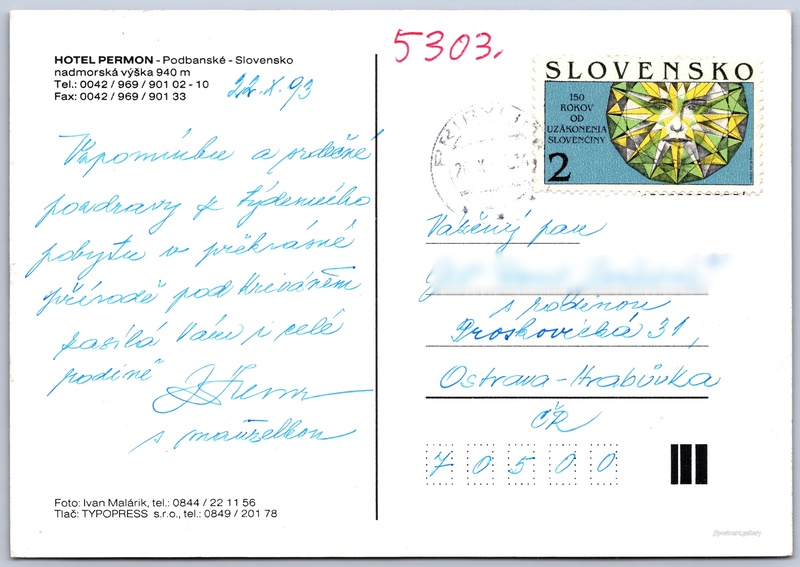 HOTEL PERMON - Podbanské - Slovensko
nadmorská výška 940 m
Tel.: 0042 / 969 / 901 02 - 10
Fax: 0042 / 969 / 901 33
22.X.93
Vzpomínku a srdečné
pozdravy z týdenního
pobytu v překrásné
přírodě pod Kriváněm
zasílá Vám i celé
rodině
s manželkou
Foto: Ivan Malárik, tel.: 0844 / 22 11 56
Tlač: TYPOPRESS s.r.o., tel.: 0849 / 201 78
5303.
SLOVENSKO
150
ROKOV
OD
UZÁKONENIA
SLOVENČINY
2
Vážený pan
s rodinou
Proskovická 31,
Ostrava-Hrabůvka
ČR
70500
postcard.gallery